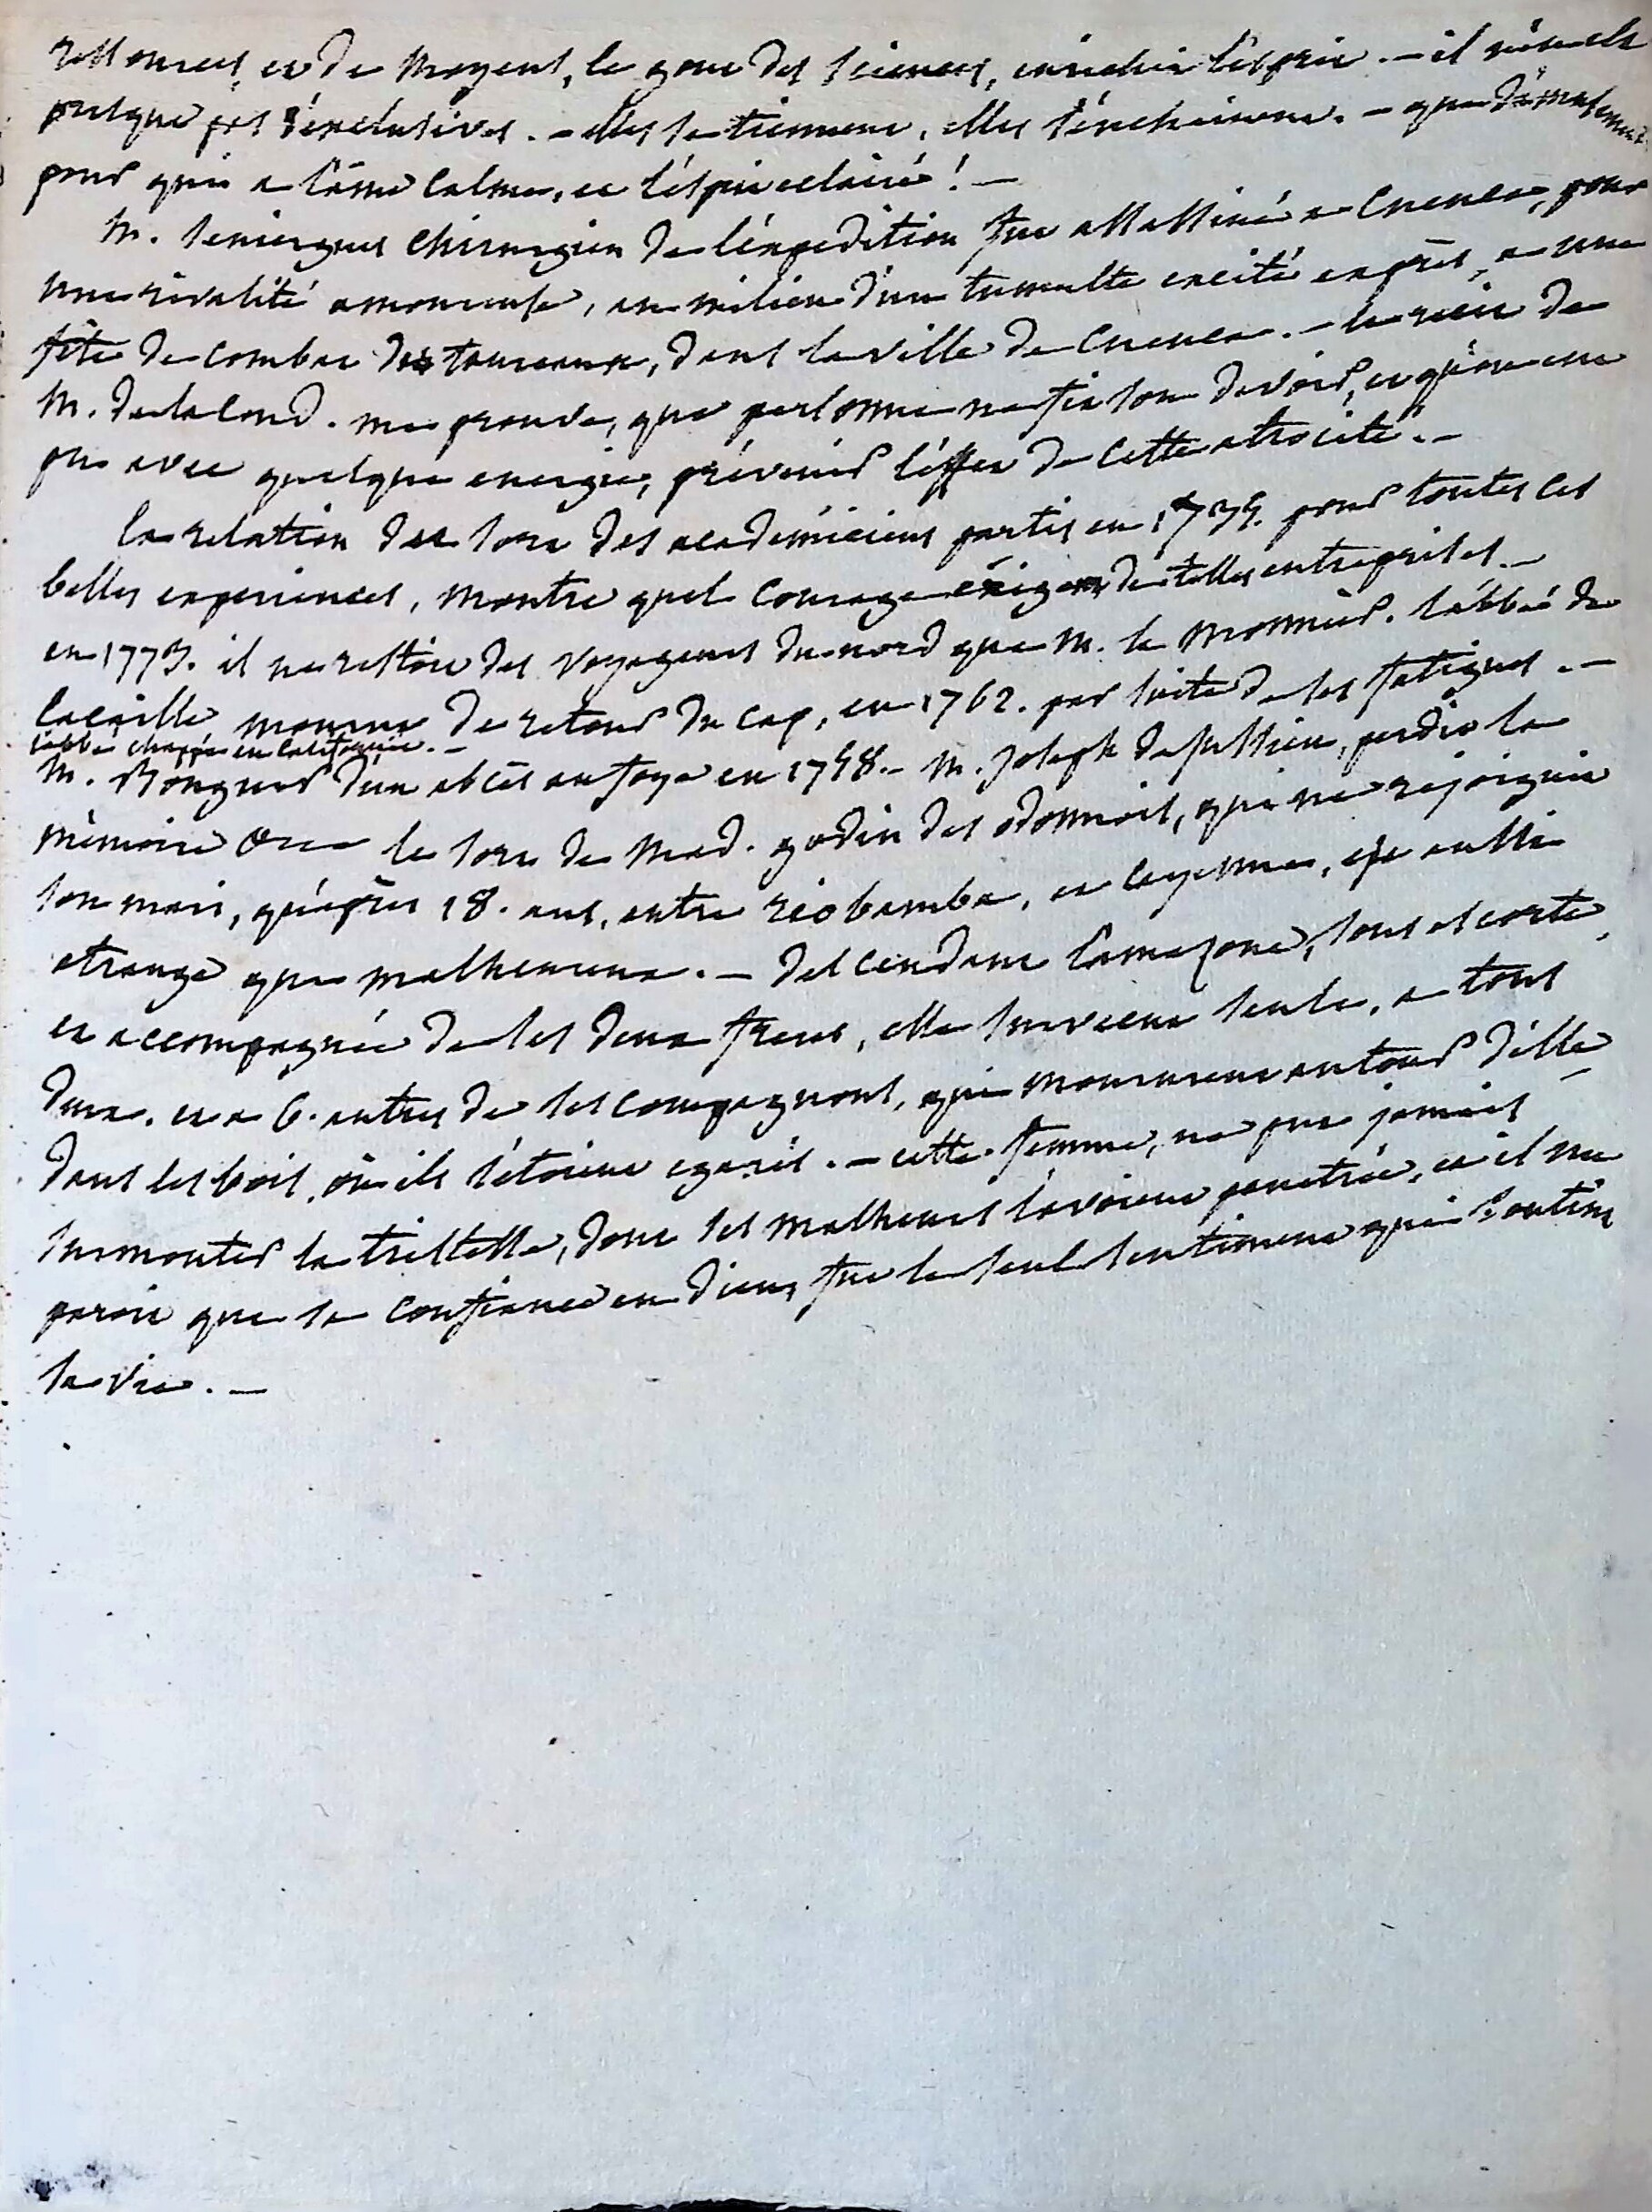 ressources, et de moyens, le gout des sciences, enrichit l'esprit. - il n'en est
presque pas d'exclusives. - elles se tiennent, elles s'enchainent. - que d'amusemens
pour qui a l'âme calme, et l'esprit eclairé ! -
M. Seniergues chirurgien de l'éxpedition fut assassiné a Cuenca, pour
une rivalité amoureuse, au milieu d'un tumulte excité exprès, a une
fête de combat des taureaux, dans la ville de Cuenca. - le recit de
M. de la Cond. me prouve, que personne ne fit son devoir, et qu'on eut
pu avec quelque energie, prévenir l'effet de cette atrocité. -
la relation du sort des académiciens partis en 1735. pour toutes ces
belles experiences, montre quel courage éxigent de telles entreprises. -
en 1773. il ne restoit des voyageurs du nord que M. le Monnier. l'abbé de
lacaille mourut de retour du cap, en 1762. par suite de ses fatigues. -
l'abbé chappe en Californie. -
M. Bouguer d'un abcès au foye en 1758. - M. Joseph de Jussieu, perdit la
mémoire le sort de Mad. godin des odonnais, qui ne rejoignit
son mari, qu'après 18. ans, entre riobamba, et cayenne, est aussi
etrange que malheureux. - descendant l'amazone, sous escorte,
et accompagnée de ses deux freres, elle survecut seule, a tous
deux, et a 6. autres de ses compagnons, qui moururent autour d'elle
dans les bois, où ils s'étoient egarés. - cette femme, ne put jamais
surmonter la tristesse, dont ses malheurs l'avoient penetrée, et il me
paroit que sa confiance en Dieu, fut le seul sentiment qui soutint
sa vie. -